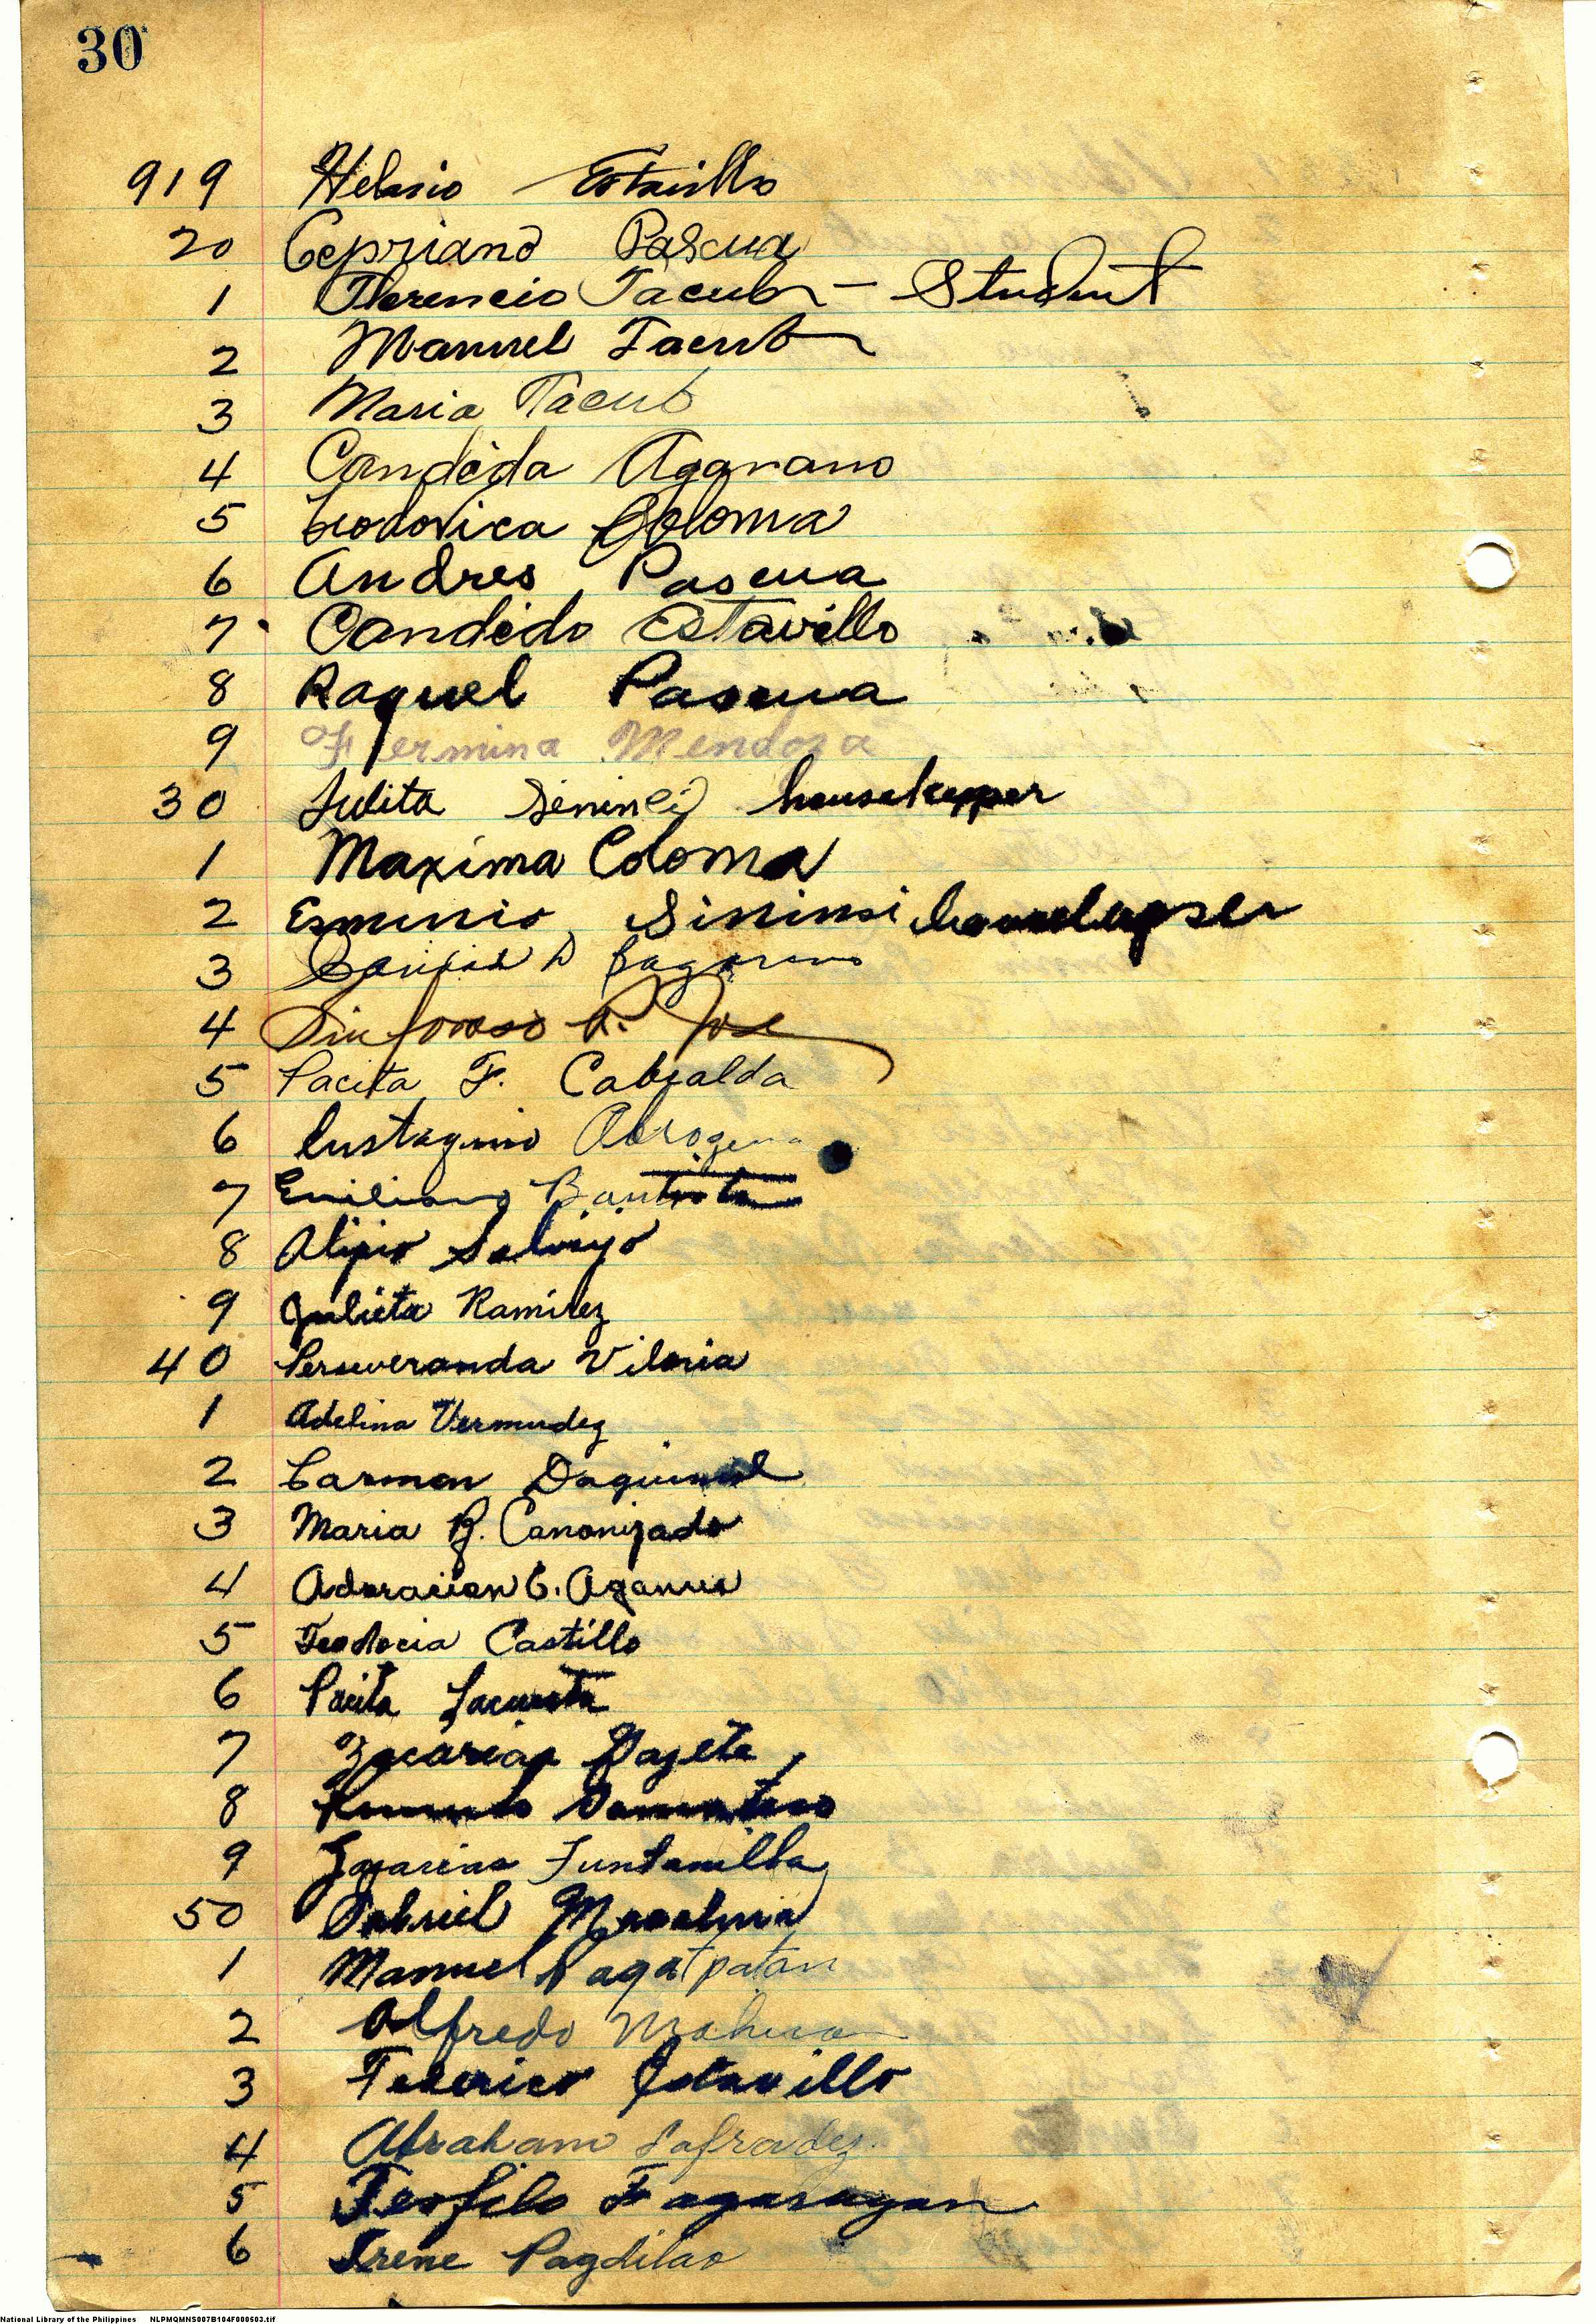 30
919 Estavillo
20 Cepriano Pascua
1 Florencio Tacub - Student
2 Manuel Tacub
3 Maria Tacub
4 Candida Agarano
5 Coloma
6 Andres Pascua
7 Candido Estavillo
8 Raquel Pascua
9 Fermina Mendoza
30 Julita
1 Maxima Coloma
2 Sininsi
3
4 Sinforoso R. Jose
5 Pacita F. Cabralda
6 Eustaquio Abrogena
7 Emiliano Bautista
8 Alipio Salvajo
9 Julieta Ramirez
40 Perseveranda Viloria
1 Adelina Vermudez
2 Carmen
3 Maria B. Canonizado
4 Adoracion
5 Teodocia Castillo
6 Pacita
7 Zacarias
8
9 Zacarias Funtanilla
50 Gabriel
1 Manuel Pagatpatan
2 Alfredo
3 Federico Estavillo
4 Abraham Lafradez
5 Teofilo Fagaragan
6 Irene Pagdilao
National Library of the Philippines NLPMQMNS007B104F000503.tif